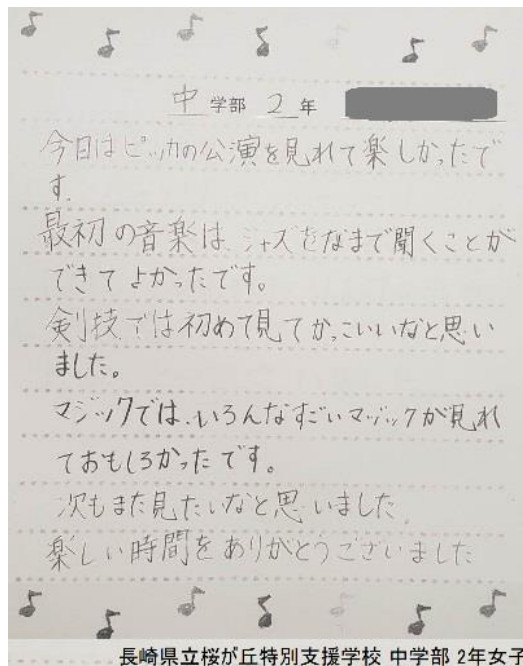 中 学部 2 年
今日はピッカの公演を見れて楽しかったで
す.
最初の音楽は、ジャズをなまで聞くことが
できてよかったです。
剣技では初めて見てかっこいいなと思い
ました。
マジックでは、いろんなすごいマジックが見れ
ておもしろかったです。
次もまた見たいなと思いました
楽しい時間をありがとうございました
長崎県立桜が丘特別支援学校 中学部 2年女子